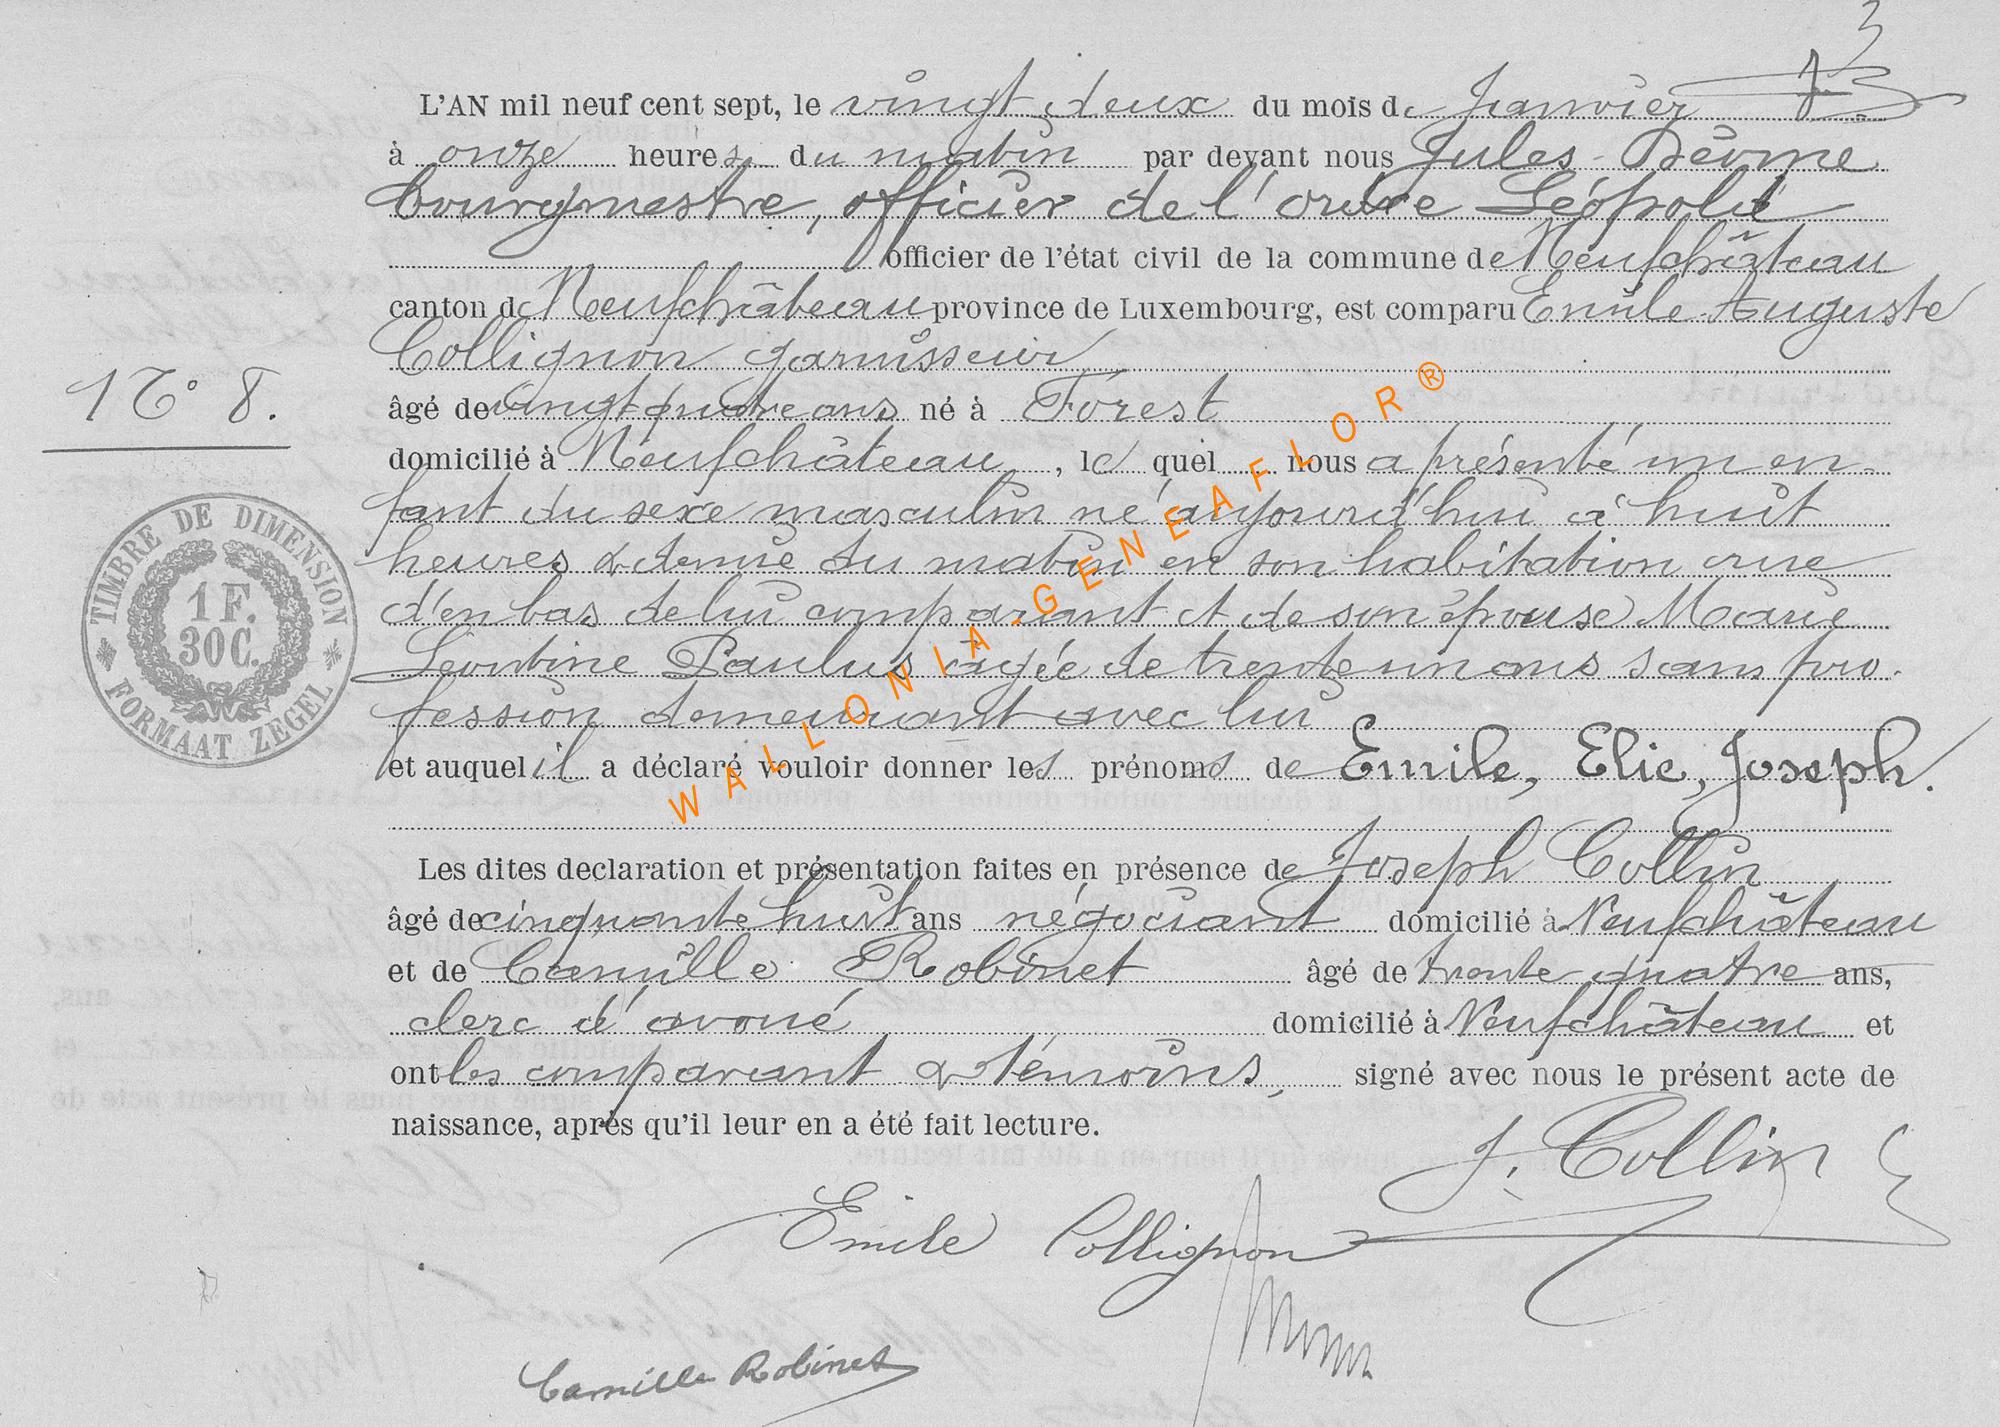 3
L'AN mil neuf cent sept, le vingt deux du mois de Janvier
à onze heures du matin par devant nous Jules
bourgmestre, officier de l'ordre Léopold
officier de l'état civil de la commune de Neufchâteau
canton de Neufchâteau province de Luxembourg, est comparu Emile Auguste
Collignon garnisseur
âgé de vingt quatre ans né à Forest
N° 8.
domicilié à Neufchâteau, le quel nous a présenté un en-
fant du sexe masculin né aujourd'hui à huit
heures & demie du matin en son habitation rue
d'en bas de lui comparant et de son épouse Marie
Léontine Paulus agée de trente un ans sans pro-
fession demeurant avec lui
et auquel il a déclaré vouloir donner les prénoms de Emile, Elie, Joseph.
TIMBRE DE DIMENSION
1 F.
30 C.
FORMAAT ZEGEL
WALLONIA-GENEAFLOR®
Les dites declaration et présentation faites en présence de Joseph Collin
âgé de cinquante huit ans négociant domicilié à Neufchâteau
et de Camille Robinet âgé de trente quatre ans,
clerc d'avoué domicilié à Neufchâteau et
ont les comparant & témoins, signé avec nous le présent acte de
naissance, après qu'il leur en a été fait lecture.
J. Collin
Emile Collignon
Camille Robinet